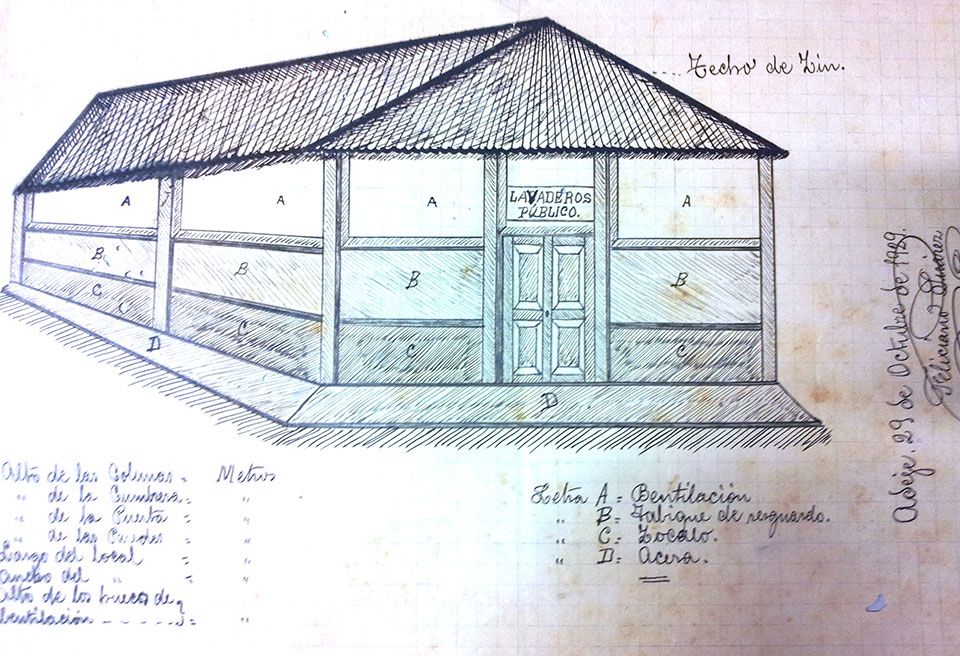 .... Techo de Zin.
A
A
A
LAVADEROS
PÚBLICO.
A
B
B
B
B
C
C
C
C
D
D
Alto de las Columas = Metros
" de la Cumbrera = "
" de la Puerta = "
" de las Paredes = "
Largo del local = "
Ancho del " = "
Alto de los huecos de
bentilación - - - - = "
Letra A = Bentilación
" B = Tabique de resguardo.
" C = Zocalo.
" D = Acera.
Adeje, 29 de Octubre de 1929.
Feliciano